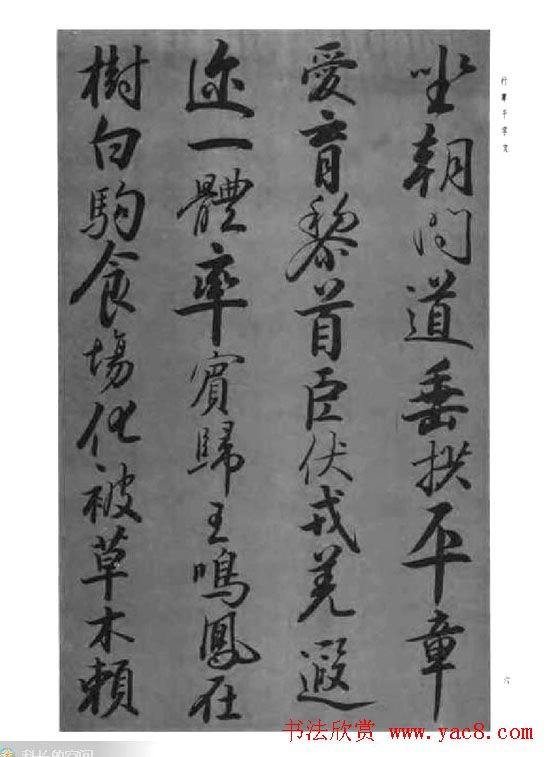 行書千字文
坐朝問道垂拱平章
愛育黎首臣伏戎羌遐
迩一體率賓歸王鳴鳳在
樹白駒食場化被草木賴
六
书法欣赏 www.yac8.com